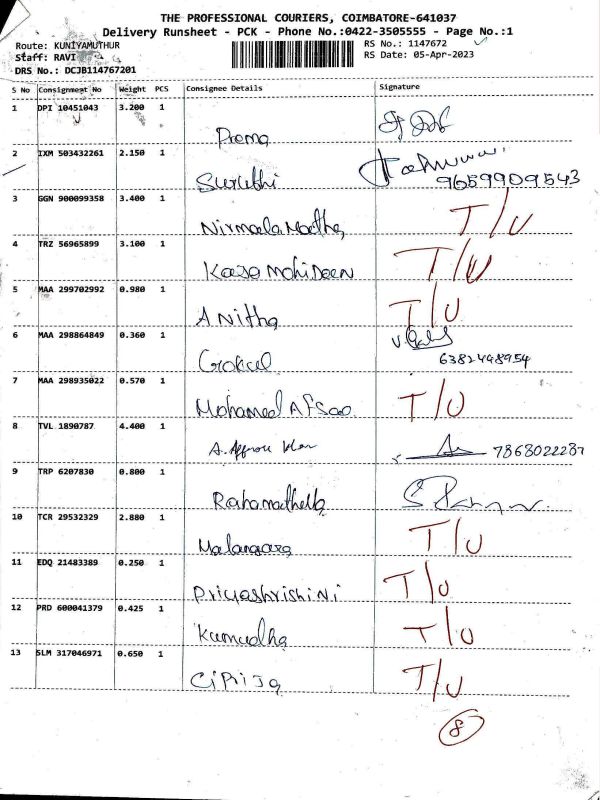 THE PROFESSIONAL COURIERS, COIMBATORE-641037
Delivery Runsheet - PCK - Phone No.:0422-3505555 - Page No.:1
Route: KUNIYAMUTHUR
RS No.: 1147672
Staff: RAVI
RS Date: 05-Apr-2023
DRS No.: DCJB114767201
S No Consignment No Weight PCS Consignee Details Signature
1 DPI 10451043 3.200 1
Prema
2 IXM 503432261 2.150 1
Suruthi 9659909543
3 GGN 900099358 3.400 1
Nirmala T/U
4 TRZ 56965899 3.100 1
Kaja Mohideen T/U
5 MAA 299702992 0.980 1
Anitha T/U
6 MAA 298864849 0.360 1
Gokul 6382498954
7 MAA 298935022 0.570 1
Mohamed T/U
8 TVL 1890787 4.400 1
A. 7868022287
9 TRP 6207830 0.800 1
10 TCR 29532329 2.880 1
T/U
11 EDQ 21483389 0.250 1
Priyashrishini T/U
12 PRD 600041379 0.425 1
Kumudha T/U
13 SLM 317046971 0.650 1
T/U
8